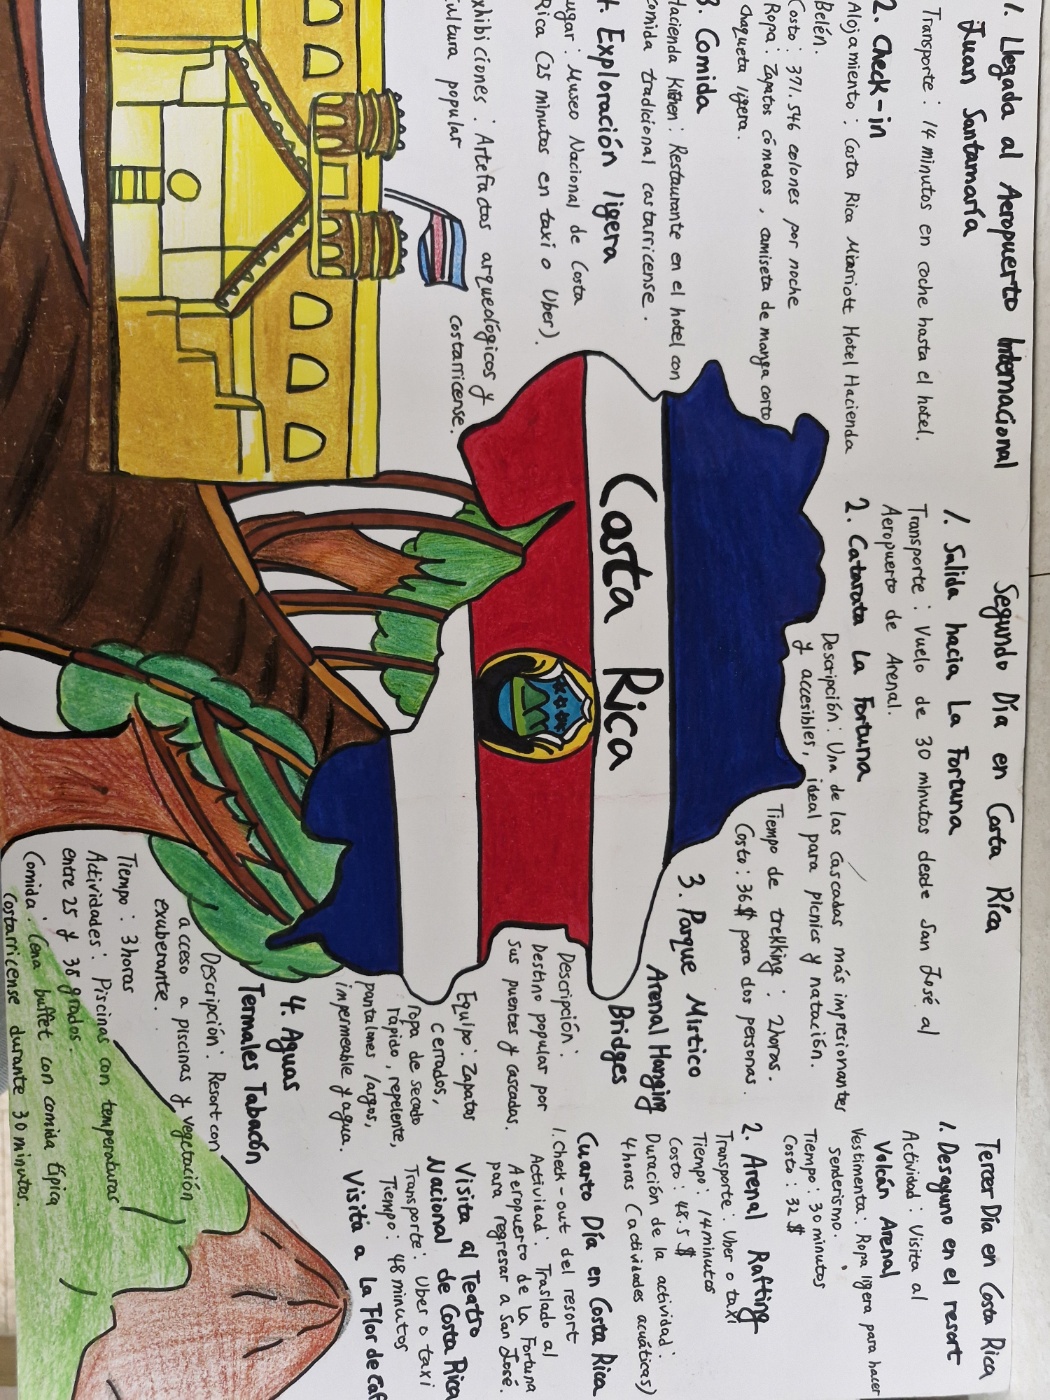 1. Llegada al Aeropuerto Internacional
Juan Santamaría
Transporte: 14 minutos en coche hasta el hotel.
2. Check-in
Alojamiento: Costa Rica Marriott Hotel Hacienda
Belén.
Costo: 371.546 colones por noche
Ropa: Zapatos cómodos, camiseta de manga corto
chaqueta ligera.
3. Comida
Hacienda Kithen: Restaurante en el hotel con
comida tradicional costarricense.
4. Exploración ligera
Lugar: Museo Nacional de Costa
Rica (25 minutos en taxi o Uber).
Exhibiciones: Artefactos arqueológicos y
cultura popular costarricense.
Costa Rica
Segundo Día en Costa Rica
1. Salida hacia La Fortuna
Transporte: Vuelo de 30 minutos desde San José al
Aeropuerto de Arenal.
2. Catarata La Fortuna
Descripción: Una de las cascadas más impresionantes
y accesibles, ideal para picnics y natación.
Tiempo de trekking: 2 horas.
Costo: 36$ para dos personas.
3. Parque Mistico
Arenal Hanging
Bridges
Descripción:
Destino popular por
sus puentes y cascadas.
Equipo: Zapatos
cerrados,
ropa de secado
rápido, repelente,
pantalones largos,
impermeable y agua.
4. Aguas
Termales Tabacón
Descripción: Resort con
acceso a piscinas y vegetación
exuberante.
Tiempo: 3 horas
Actividades: Piscinas con temperaturas
entre 25 y 38 grados.
Comida: Cena buffet con comida típica
costarricense durante 30 minutos.
Tercer Día en Costa Rica
1. Desayuno en el resort
Actividad: Visita al
Volcán Arenal
Vestimenta: Ropa ligera para hacer
senderismo.
Tiempo: 30 minutos
Costo: 32$
2. Arenal Rafting
Transporte: Uber o taxi
Tiempo: 14 minutos
Costo: 48.5$
Duración de la actividad:
4 horas (actividades acuáticas)
Cuarto Día en Costa Rica
1. Check-out del resort
Actividad: Traslado al
Aeropuerto de la Fortuna
para regresar a San José.
Visita al Teatro
Nacional de Costa Rica
Transporte: Uber o taxi
Tiempo: 48 minutos
Visita a la Flor de Caf